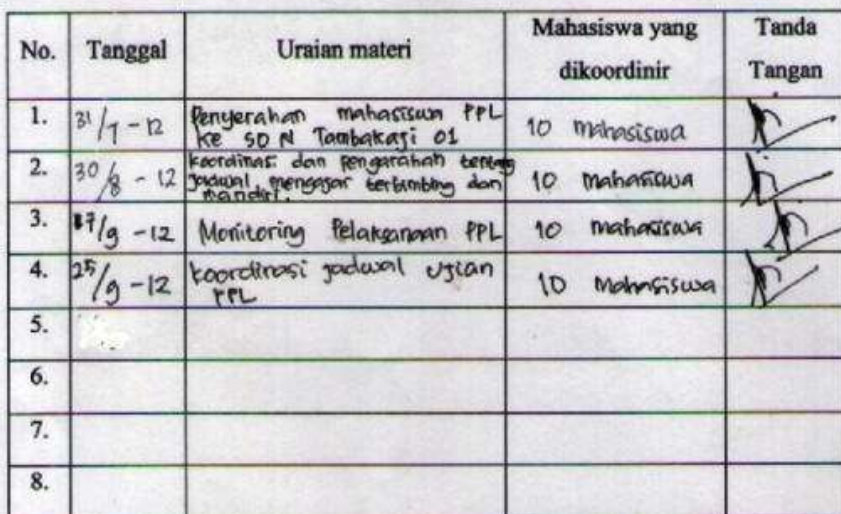 No. Tanggal Uraian materi Mahasiswa yang dikoordinir Tanda Tangan
1. 31/7 - 12 Penyerahan mahasiswa PPL 10 mahasiswa
ke SD N Tambakaji 01
2. 30/8 - 12 koordinasi dan pengarahan tentang 10 mahasiswa
jadwal mengajar terbimbing dan
mandiri.
3. 17/9 - 12 Monitoring Pelaksanaan PPL 10 mahasiswa
4. 25/9 - 12 koordinasi jadwal ujian 10 mahasiswa
PPL
5.
6.
7.
8.